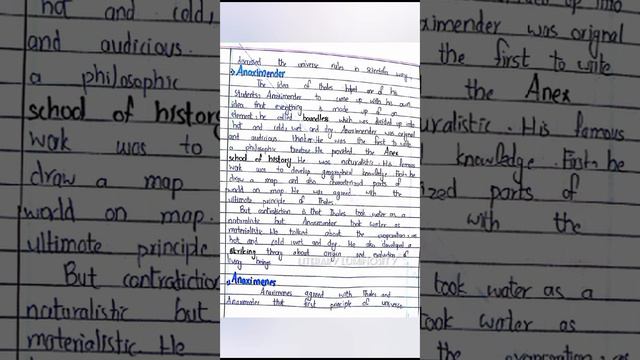 discussed the universe rules in scientific way.
→ Anaximander
The idea of thales helped one of his
Students Anaximander to come up with his own
idea that everything is made up of an
element he called boundless which was divided up into
hot and cold, wet and dry. Anaximender was original
and audicious thinker. He was the first to write
a philosophic treatise. He provided the Anex
school of history. He was naturalistic. His famous
work was to develop geographical knowledge. First he
draw a map and also characterized parts of
world on map. He was agreed with the
ultimate principle of Thales.
But contradiction is that Thales took water as a
naturalistic but Anaximander took water as
materialistic. He talked about the evaporation as
hot and cold wet and dry. He also developed a
striking theory about origin and evolution of
living beings.
LITERARY LUMINOSITY
→ Anaximenes
Anaximenes agreed with Thales and
Anaximander that first principle of universe
hot and cold,
and audicious
a philosophic
school of history
work was to
draw a map
world on map.
ultimate principle
But contradiction
naturalistic but
materialistic. He
up into
ximender was original
the first to write
the Anex
uralistic. His famous
knowledge. First he
ized parts of
with the
took water as a
took water as
the evaporation as